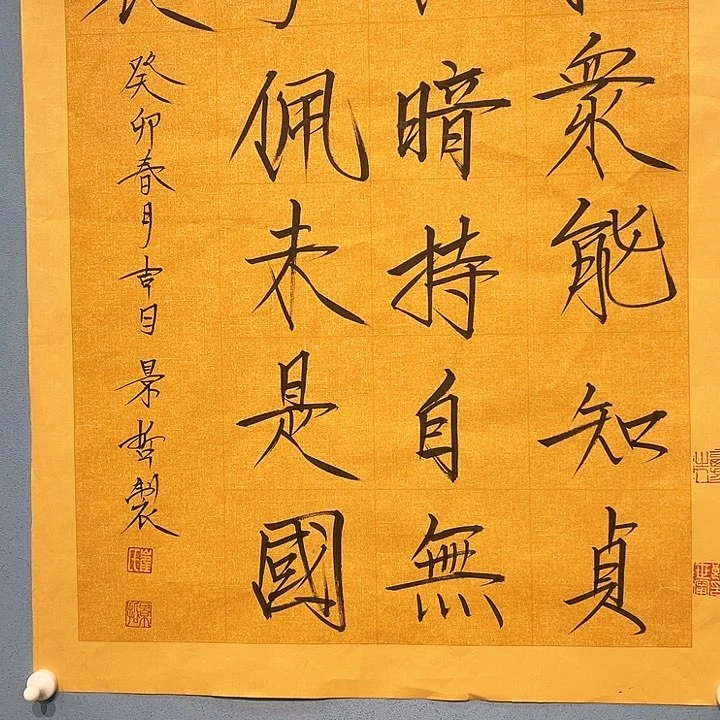 衆能知貞
暗持自無
佩未是國
癸卯春月吉日景哲製